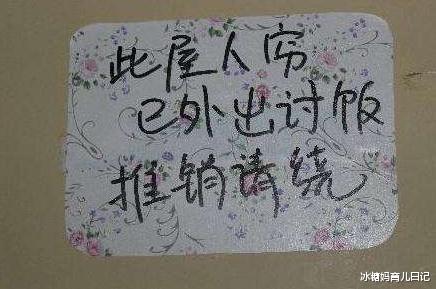 此屋人穷
已外出讨饭
推销请绕
冰糖妈育儿日记